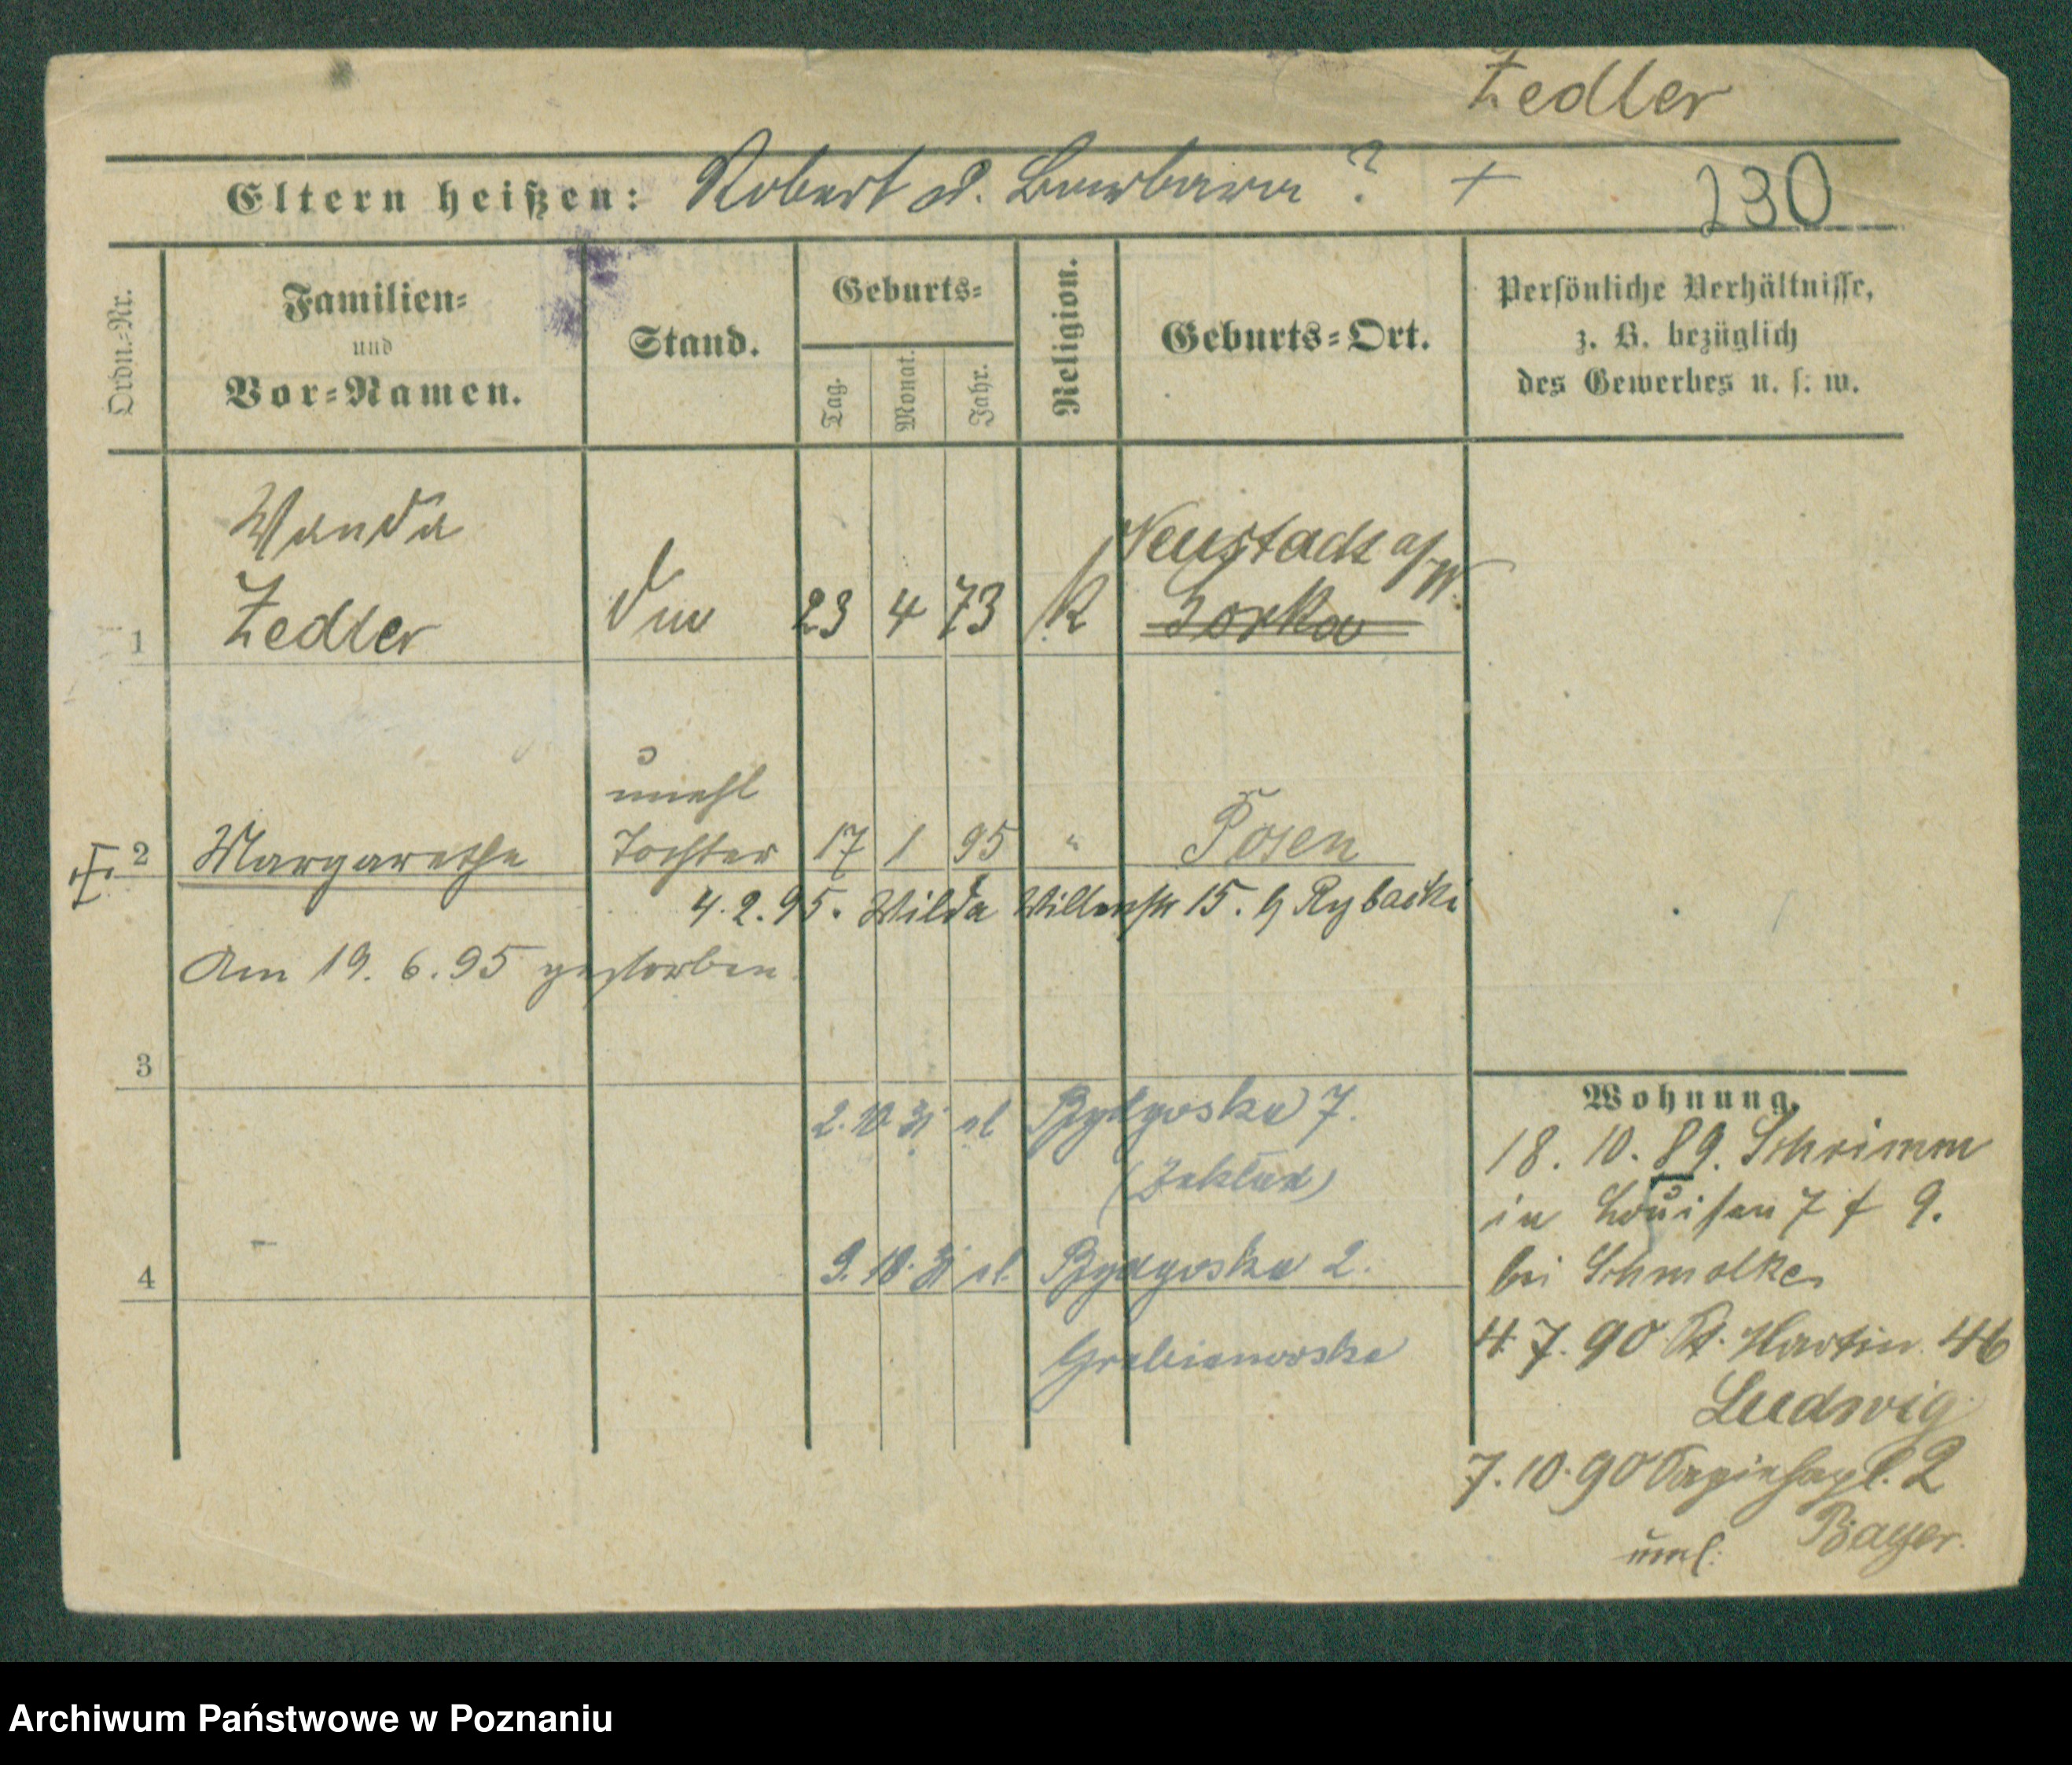 Zedler
Eltern heißen: Robert d. Barbara ? +
230
Ordn.-Nr.
Familien-
und
Vor-Namen.
Stand.
Geburts-
Tag.
Monat.
Jahr.
Religion.
Geburts-Ort.
Persönliche Verhältnisse,
z. B. bezüglich
des Gewerbes u. s. w.
Wanda
Neustadt a/W.
1 Zedler 23 4 73 K Gorka
unehl
2 Margarethe Tochter 17 1 95 " Posen
4.2.95. Wilda 15. b Rybacki
Am 19. 6. 95 gestorben.
3
2.10.31 ul Bydgoska 7.
(Zakład)
4 9.10.31 ul. Bydgoska 2.
Grabianowska
Wohnung.
18. 10. 89. Schrimm
in Louisen 7 f 9.
bei Schmolke
4. 7. 90 St. Martin 46
Ludwig
7. 10. 90 Sapiehapl. 2
Bayer.
Archiwum Państwowe w Poznaniu